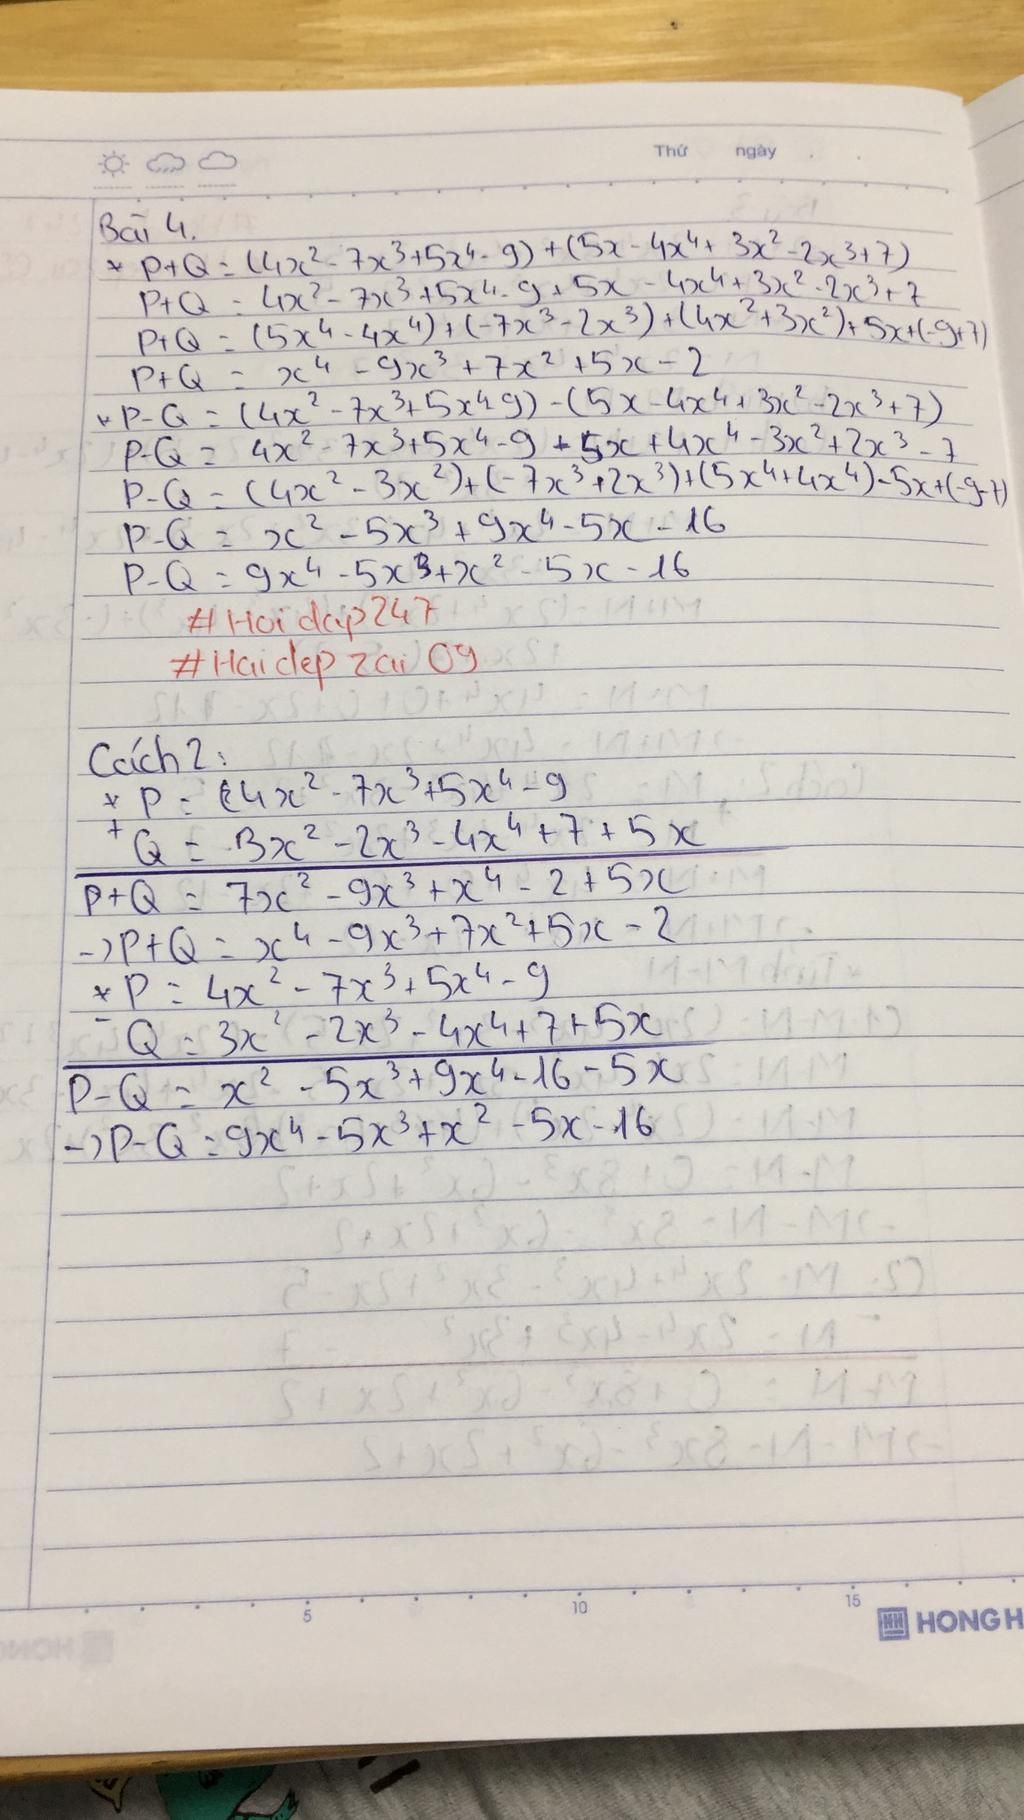 Thứ ngày
Bài 4.
* P+Q = (4x² - 7x³ + 5x⁴ - 9) + (5x - 4x⁴ + 3x² - 2x³ + 7)
P+Q = 4x² - 7x³ + 5x⁴ - 9 + 5x - 4x⁴ + 3x² - 2x³ + 7
P+Q = (5x⁴ - 4x⁴) + (-7x³ - 2x³) + (4x² + 3x²) + 5x + (-9+7)
P+Q = x⁴ - 9x³ + 7x² + 5x - 2
* P-Q = (4x² - 7x³ + 5x⁴ - 9) - (5x - 4x⁴ + 3x² - 2x³ + 7)
P-Q = 4x² - 7x³ + 5x⁴ - 9 + 5x + 4x⁴ - 3x² + 2x³ - 7
P-Q = (4x² - 3x²) + (-7x³ + 2x³) + (5x⁴ + 4x⁴) - 5x + (-9-7)
P-Q = x² - 5x³ + 9x⁴ - 5x - 16
P-Q = 9x⁴ - 5x³ + x² - 5x - 16
#Hoidap247
#Haidepzai09
Cách 2:
* P = 4x² - 7x³ + 5x⁴ - 9
+ Q = 3x² - 2x³ - 4x⁴ + 7 + 5x
P+Q = 7x² - 9x³ + x⁴ - 2 + 5x
-> P+Q = x⁴ - 9x³ + 7x² + 5x - 2
* P = 4x² - 7x³ + 5x⁴ - 9
- Q = 3x² - 2x³ - 4x⁴ + 7 + 5x
P-Q = x² - 5x³ + 9x⁴ - 16 - 5x
-> P-Q = 9x⁴ - 5x³ + x² - 5x - 16
5 10 15
HONG H